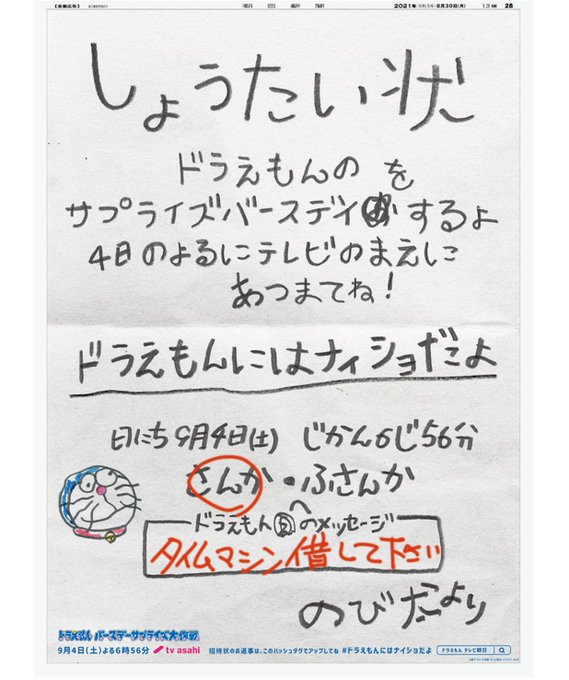 【全面広告】 朝日新聞 2021年(令和3年)8月30日(月) 13版 28
しょうたい状
ドラえもんの を
サプライズバースデイ するよ
4日のよるにテレビのまえに
あつまてね!
ドラえもんにはナイショだよ
日にち 9月4日(土) じかん6じ56分
さんか・ふさんか
ドラえもんへのメッセージ
タイムマシン借して下さい
のび太より
ドラえもん バースデーサプライズ大作戦
9月4日(土)よる6時56分 tv asahi 招待状のお返事は、このハッシュタグでアップしてね #ドラえもんにはナイショだよ ドラえもん テレビ朝日